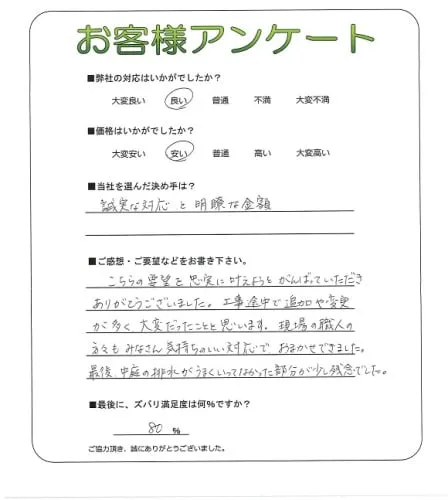 お客様アンケート
■弊社の対応はいかがでしたか?
大変良い 良い 普通 不満 大変不満
■価格はいかがでしたか?
大変安い 安い 普通 高い 大変高い
■当社を選んだ決め手は?
誠実な対応と明瞭な金額
■ご感想・ご要望などをお書き下さい。
こちらの要望を忠実に叶えようとがんばっていただき
ありがとうございました。工事途中で追加や変更
が多く大変だったことと思います。現場の職人の
方々もみなさん気持ちのいい対応で、おまかせできました。
最後、中庭の排水がうまくいってなかった部分が少し残念でした。
■最後に、ズバリ満足度は何%ですか?
80 %
ご協力頂き、誠にありがとうございました。